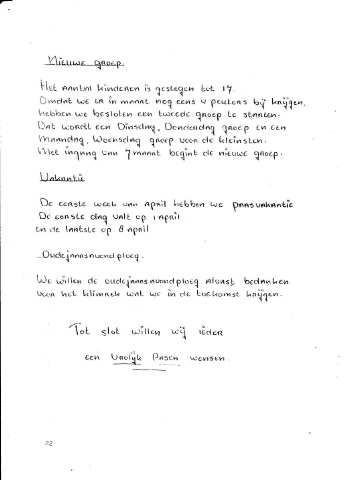 Nieuwe groep.
Het aantal kinderen is gestegen tot 17.
Omdat we er in maart nog eens 4 peuters bij krijgen,
hebben we besloten een tweede groep te starten.
Dat wordt een Dinsdag, Donderdag groep en een
Maandag, Woensdag groep voor de kleinsten.
Met ingang van 7 maart begint de nieuwe groep.
Vakantie
De eerste week van april hebben we paasvakantie
De eerste dag valt op 1 april
en de laatste op 8 april
Oudejaarsavondploeg.
We willen de oudejaarsavondploeg alvast bedanken
voor het klimrek wat we in de toekomst krijgen.
Tot slot willen wij ieder
een Vrolijk Pasen wensen.